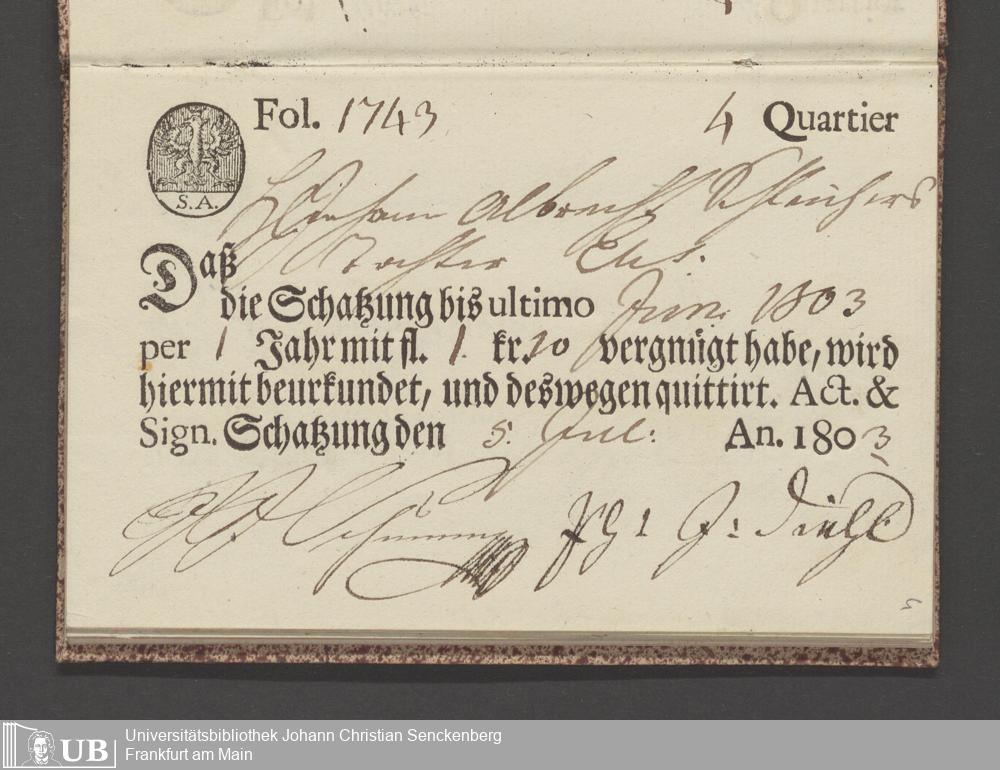 Fol. 1743 4 Quartier
S.A.
Albrecht Schleichers
Daß Tochter
die Schatzung bis ultimo Juni 1803
per 1 Jahr mit fl. 1. kr. 20 vergnügt habe, wird
hiermit beurkundet, und deswegen quittirt. Act. &
Sign. Schatzung den 5. Jul: An. 1803
5
UB
Universitätsbibliothek Johann Christian Senckenberg
Frankfurt am Main